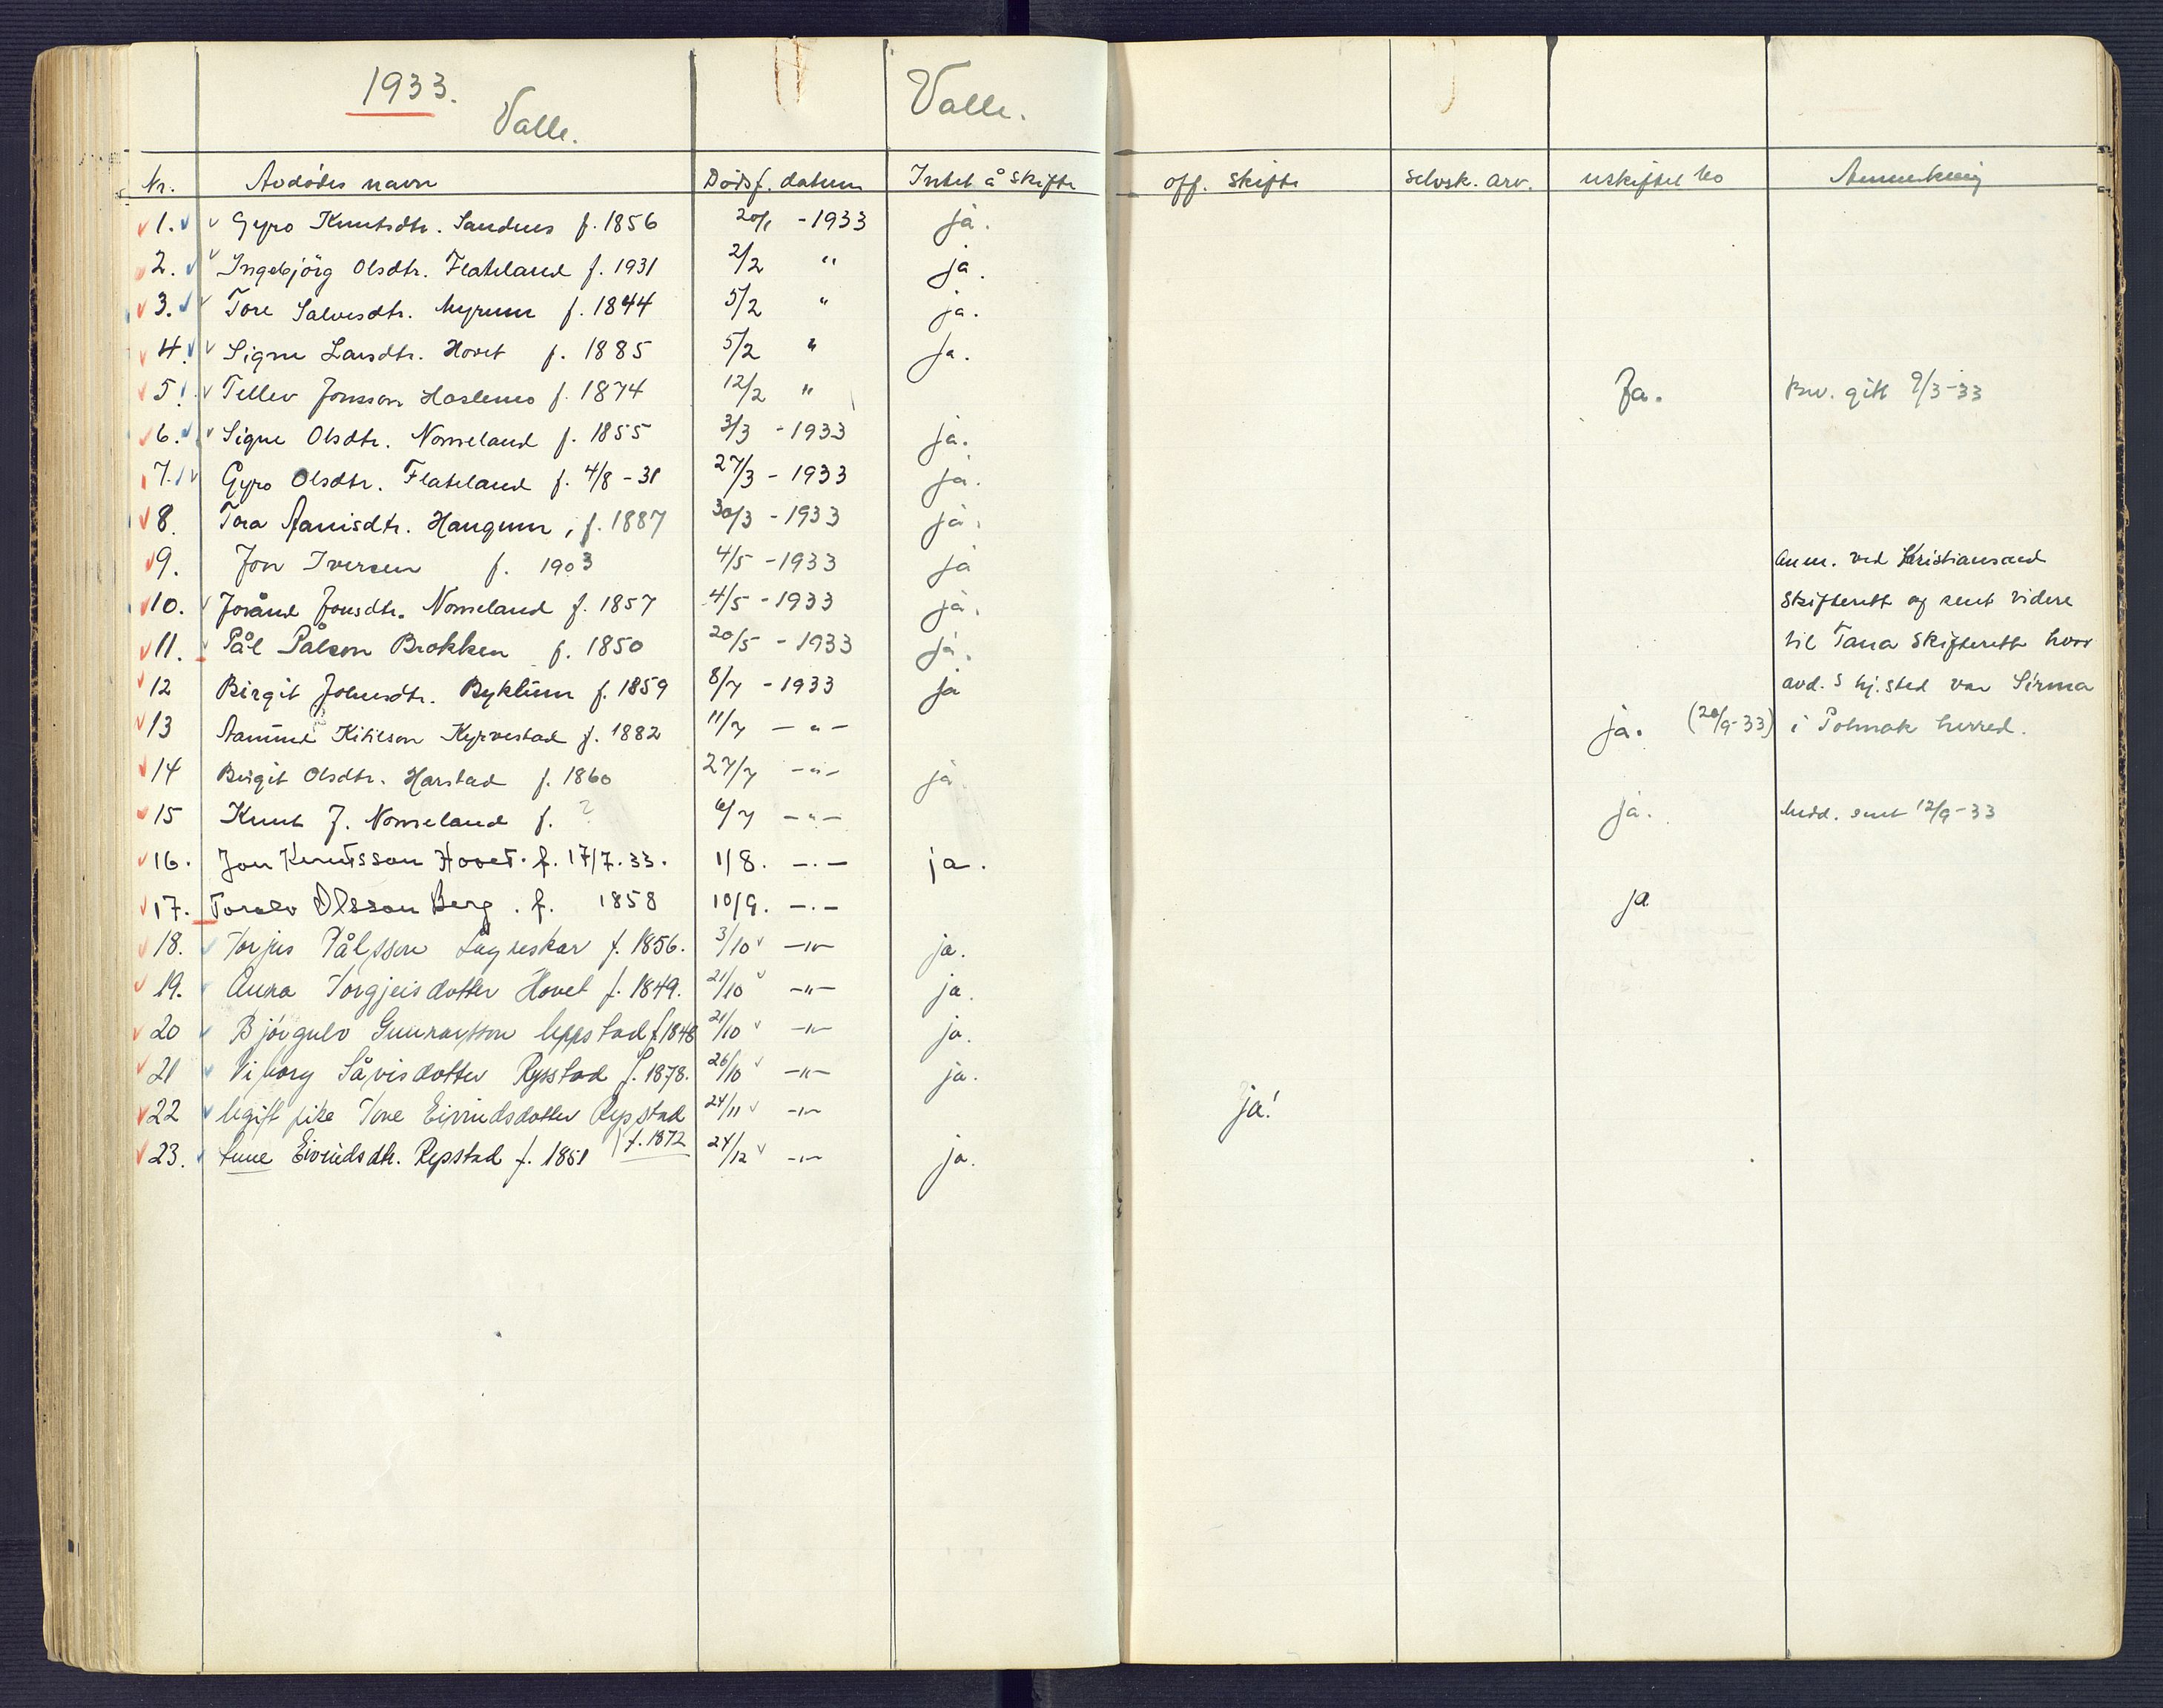 1933.
Valle.
Valle.
Nr. Avdødes navn Dødsf. datum Intet å skifte off. skifte selvsk. arv. uskiftet bo Anmerkning
1. Gyro Knutsdtr. Sandnes f. 1856 20/1 - 1933 ja.
2. Ingebjörg Olsdtr. Flateland f. 1931 2/2 " ja.
3. Tore Salvesdtr. Myrum f. 1844 5/2 " ja.
4. Signe Larsdtr. Hovet f. 1885 5/2 " ja.
5. Tellev Jonsson Haslemo f. 1874 12/2 " Ja. Bev. gitt 9/3-33
6. Signe Olsdtr. Nomeland f. 1855 3/3 - 1933 ja.
7. Gyro Olsdtr. Flateland f. 4/8 - 31 27/3 - 1933 ja.
8. Tora Aanisdtr. Haugum, f. 1887 30/3 - 1933 ja.
9. Jon Iversen f. 1903 4/5 - 1933 ja Anm. ved Kristiansand
10. Joránd Jonsdtr. Nomeland f. 1857 4/5 - 1933 ja. Skifterett og sent videre
11. Pål Pålson Brokken f. 1850 20/5 - 1933 ja. til Tana Skifterett hvor
12 Birgit Johnsdtr. Byklum f. 1859 8/7 - 1933 ja avd. s hj.sted var Sirma
13 Aamund Kittilson Kyrvestad f. 1882 11/7 - " - ja. (20/9-33) i Polmak herred.
14 Birgit Olsdtr. Harstad f. 1860 27/7 - " - ja.
15 Knut J. Nomeland f. ? 6/7 - " - ja. Medd. sent 12/9-33
16. Jon Knutsson Hovet. f. 17/7. 33. 1/8. -.- ja.
17. Toralv Olsson Berg. f. 1858 10/9. -.- ja
18. Torjus Pålsson f. 1856. 3/10 -"- ja.
19. Anna Torgjeisdotter Hovet f. 1849. 21/10 -"- ja.
20 Bjørgulv Gunnarsson Uppstad f. 1848 21/10 -"- ja.
21 Viborg Såvisdotter Rysstad f. 1878. 26/10 -"- ja.
22 Ugift pike Tone Eivindsdotter Rysstad 24/11 -"- ja!
f. 1872
23. Eivindsdtr. Rysstad f. 1851 24/12 -"- ja.